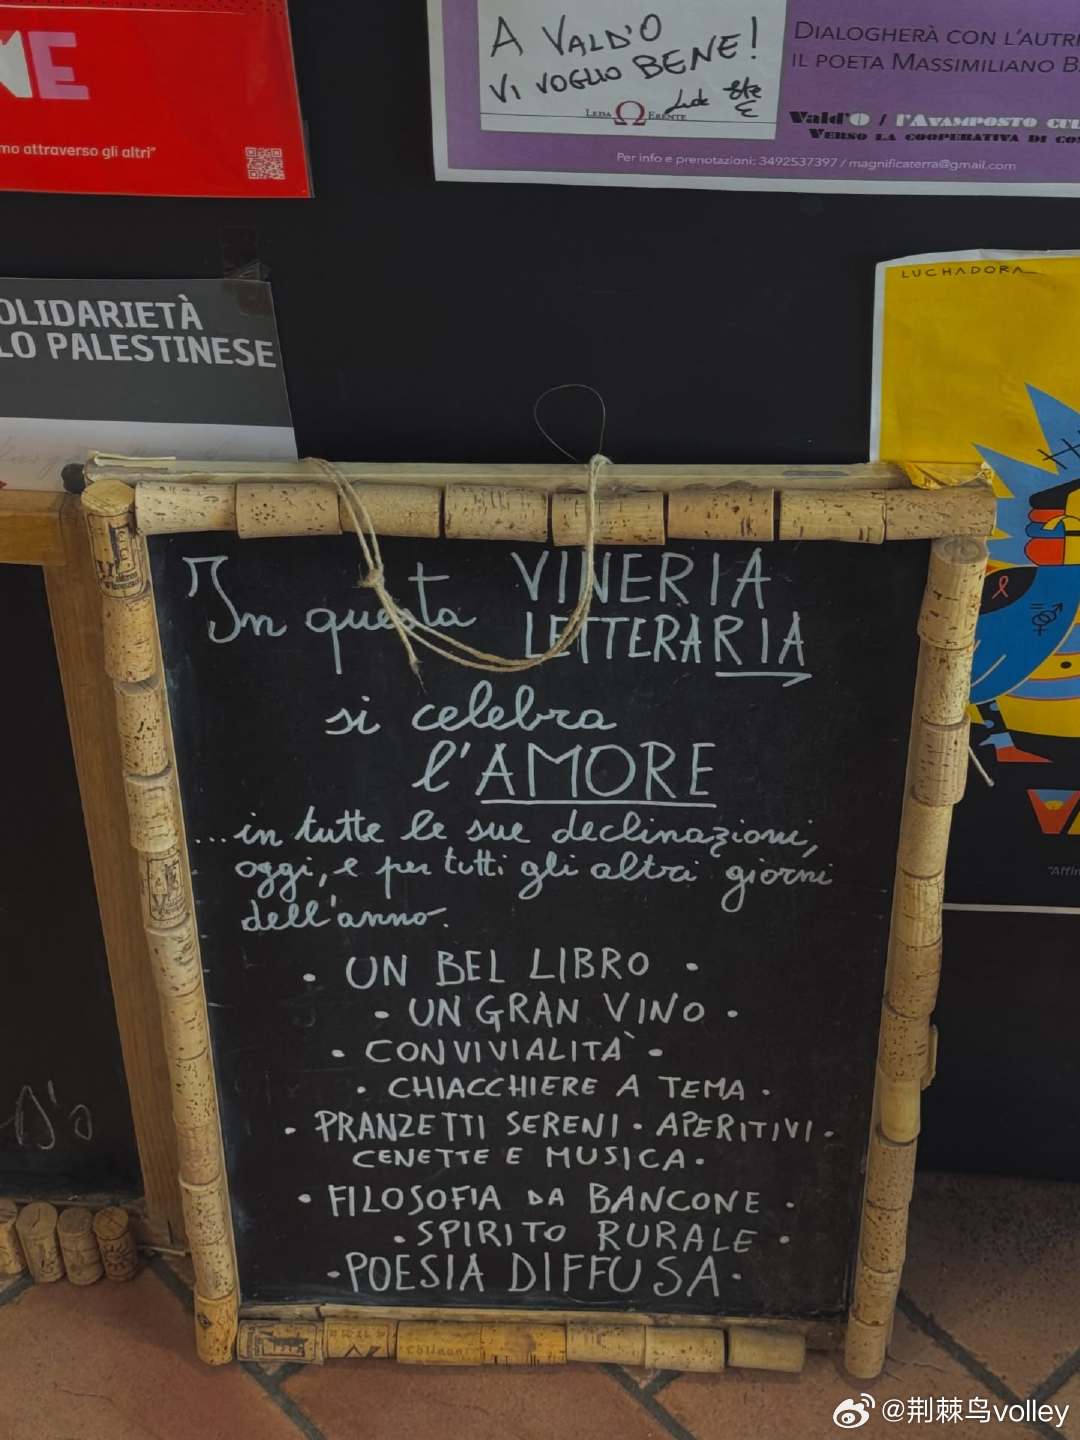 NE
mo attraverso gli altri"
A VALD'O
VI VOGLIO BENE!
LEDA ERENTE
DIALOGHERÀ CON L'AUTRI
IL POETA MASSIMILIANO B
Vald'O / L'AVAMPOSTO CUL
VERSO LA COOPERATIVA DI CO
Per info e prenotazioni: 3492537397 / magnificaterra@gmail.com
OLIDARIETÀ
LO PALESTINESE
LUCHADORA
"Affin
In questa VINERIA
LETTERARIA
si celebra
l'AMORE
...in tutte le sue declinazioni,
oggi, e per tutti gli altri giorni
dell'anno.
• UN BEL LIBRO •
• UN GRAN VINO •
• CONVIVIALITÀ •
• CHIACCHIERE A TEMA •
• PRANZETTI SERENI • APERITIVI •
CENETTE E MUSICA •
• FILOSOFIA DA BANCONE •
• SPIRITO RURALE •
• POESIA DIFFUSA •
@荆棘鸟volley